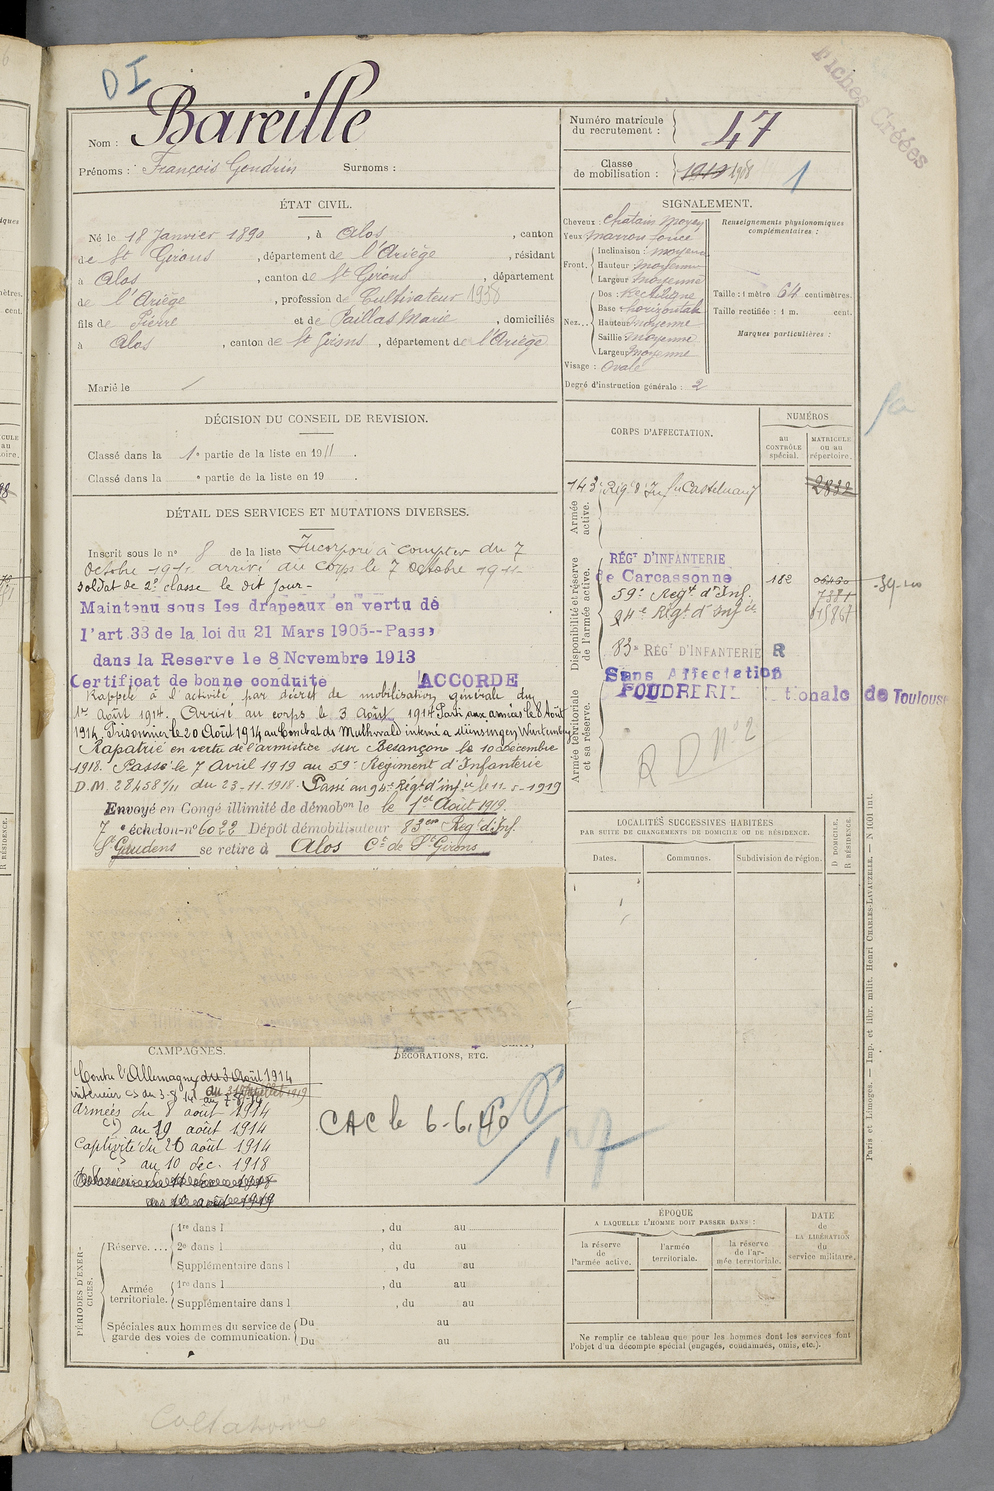 DI
Fiches Créées
Nom : Bareille
Prénoms : François Gendrin Surnoms :
Numéro matricule du recrutement : 47
Classe de mobilisation : 1910 1908
1
ÉTAT CIVIL.
Né le 18 Janvier 1890 , à Alos , canton
de St Girons , département de l'Ariège , résidant
à Alos , canton de St Girons , département
de l'Ariège , profession de Cultivateur 1938
fils de Pierre et de Paillas Marie , domiciliés
à Alos , canton de St Girons , département de l'Ariège
Marié le
SIGNALEMENT.
Cheveux : Chatain moyen
Yeux marron foncé
Front. Inclinaison : moyenne
Hauteur moyenne
Largeur moyenne
Nez... Dos : Rectiligne
Base : horizontale
Hauteur moyenne
Saillie moyenne
Largeur moyenne
Visage : Ovale
Degré d'instruction générale : 2
Renseignements physionomiques complémentaires :
Taille : 1 mètre 64 centimètres.
Taille rectifiée : 1 m. cent.
Marques particulières :
DÉCISION DU CONSEIL DE REVISION.
Classé dans la 1e partie de la liste en 1911 .
Classé dans la e partie de la liste en 19 .
DÉTAIL DES SERVICES ET MUTATIONS DIVERSES.
Inscrit sous le no 8 de la liste Incorporé à compter du 7
Octobre 1911 arrivé au corps le 7 Octobre 1911
soldat de 2e classe le dit jour -
Maintenu sous les drapeaux en vertu de
l'art 33 de la loi du 21 Mars 1905--Passé
dans la Reserve le 8 Novembre 1913
Certificat de bonne conduite ACCORDE
Rappelé à l'activité par décret de mobilisation générale du
1er Août 1914. Arrivé au corps le 3 Août 1914 Parti aux armées le 8 Août
1914, Prisonnier le 20 Août 1914 au Combat de Muthwald interné à Münsingen Wurtemberg
Rapatrié en vertu de l'armistice sur Besançon le 10 décembre
1918. Passé le 7 Avril 1919 au 59e Régiment d'Infanterie
D.M. 28458/11 du 23-11-1918. Passé au 94e Régt d'inf.ie le 11-5-1919
Envoyé en Congé illimité de démobon le le 1er Août 1919.
7 e échelon no 6022 Dépôt démobilisateur 83eme Regt d'Inf.
St Gaudens se retire à Alos Con de St Girons
CORPS D'AFFECTATION.
NUMÉROS
au CONTRÔLE spécial.
MATRICULE ou au répertoire.
Armée active.
143e Rég. d'Inf. Castelnaudary 2832
Disponibilité et réserve de l'armée active.
RÉGt D'INFANTERIE
de Carcassonne 182
59e Regt d'Inf. 7381
94e Régt d'Inf.ie
83e RÉGt D'INFANTERIE R
Armée territoriale et sa réserve.
Sans Affectation
POUDRERIE Nationale de Toulouse
RD No 2
LOCALITÉS SUCCESSIVES HABITÉES
PAR SUITE DE CHANGEMENTS DE DOMICILE OU DE RÉSIDENCE.
Dates.
Communes.
Subdivision de région.
D DOMICILE.
R RÉSIDENCE.
CAMPAGNES.
Contre l'Allemagne du 3 Août 1914
au 31 juillet 1919
intérieur CS du 3-8-14 au 7-8-14
Armées du 8 août 1914
CS au 19 août 1914
Captivité du 20 août 1914
au 10 dec. 1918
DÉCORATIONS, ETC.
CAC le 6-6.40
PÉRIODES D'EXERCICES.
Réserve.... 1re dans l , du au
2e dans l , du au
Supplémentaire dans l , du au
Armée territoriale. 1re dans l , du au
Supplémentaire dans l , du au
Spéciales aux hommes du service de garde des voies de communication. Du au
Du au
ÉPOQUE
A LAQUELLE L'HOMME DOIT PASSER DANS :
la réserve de l'armée active.
l'armée territoriale.
la réserve de l'armée territoriale.
DATE de LA LIBÉRATION du service militaire.
Ne remplir ce tableau que pour les hommes dont les services font
l'objet d'un décompte spécial (engagés, condamnés, omis, etc.).
Paris et Limoges. — Imp. et libr. milit. Henri CHARLES-LAVAUZELLE. — N 1001 int.